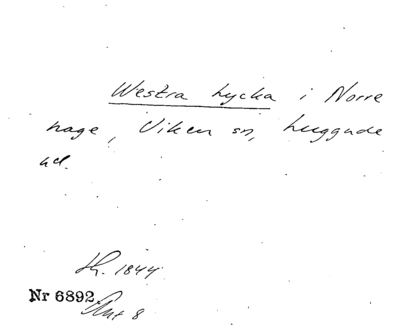 Westra Lycka i Norre
hage, Viken sn, huggude
ad.
Lh. 1844
Nr 6892
Ant 8